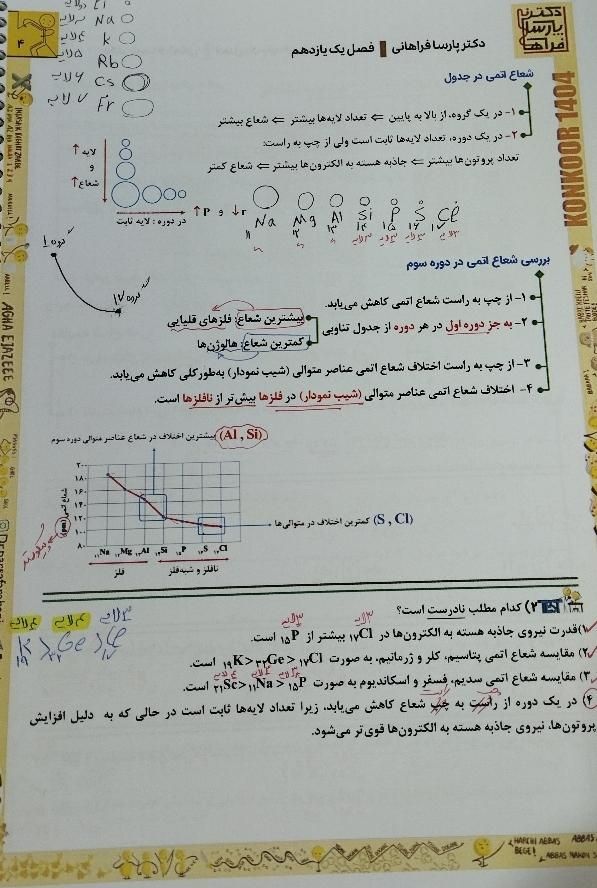 Li
Na
K
Rb
Cs
Fr
دکتر پارسا فراهانی فصل یک یازدهم
دکتر پارسا فراهانی
۴
KONKOOR 1404
شعاع اتمی در جدول
۱- در یک گروه، از بالا به پایین ⇐ تعداد لایه‌ها بیشتر ⇐ شعاع بیشتر
۲- در یک دوره، تعداد لایه‌ها ثابت است ولی از چپ به راست:
تعداد پروتون‌ها بیشتر ⇐ جاذبه هسته به الکترون‌ها بیشتر ⇐ شعاع کمتر
↑ لایه
و
↑ شعاع
در دوره : لایه ثابت
↑P و ↓r
Na Mg Al Si P S Cl
۱۱ ۱۲ ۱۳ ۱۴ ۱۵ ۱۶ ۱۷
گروه ۱
گروه ۱۷
بررسی شعاع اتمی در دوره سوم
۱- از چپ به راست شعاع اتمی کاهش می‌یابد.
۲- به جز دوره اول در هر دوره از جدول تناوبی
بیشترین شعاع: فلزهای قلیایی
کمترین شعاع: هالوژن‌ها
۳- از چپ به راست اختلاف شعاع اتمی عناصر متوالی (شیب نمودار) به‌طور کلی کاهش می‌یابد.
۴- اختلاف شعاع اتمی عناصر متوالی (شیب نمودار) در فلزها بیش‌تر از نافلزها است.
بیشترین اختلاف در شعاع عناصر متوالی دوره سوم (Al , Si)
شعاع اتمی (pm)
۲۰۰
۱۸۰
۱۶۰
۱۴۰
۱۲۰
۱۰۰
۸۰
کمترین اختلاف در متوالی‌ها (S , Cl)
₁₁Na ₁₂Mg ₁₃Al ₁₄Si ₁₅P ₁₆S ₁₇Cl
فلز
نافلز و شبه‌فلز
پیکومتر
AGHA EJAZEEE
۲) کدام مطلب نادرست است؟
۳لایه ۳لایه
۱) قدرت نیروی جاذبه هسته به الکترون‌ها در ₁₇Cl بیشتر از ₁₅P است.
۲) مقایسه شعاع اتمی پتاسیم، کلر و ژرمانیم، به صورت ₁₉K > ₃₂Ge > ₁₇Cl است.
۳) مقایسه شعاع اتمی سدیم، فسفر و اسکاندیوم به صورت ₂₁Sc > ₁₁Na > ₁₅P است.
۴) در یک دوره از راست به چپ شعاع کاهش می‌یابد، زیرا تعداد لایه‌ها ثابت است در حالی که به دلیل افزایش
پروتون‌ها، نیروی جاذبه هسته به الکترون‌ها قوی‌تر می‌شود.
۴لایه ۴لایه ۳لایه
K > Ge > Cl
۱۹ ۳۲ ۱۷
HARCHI ABBAS
BEGE!